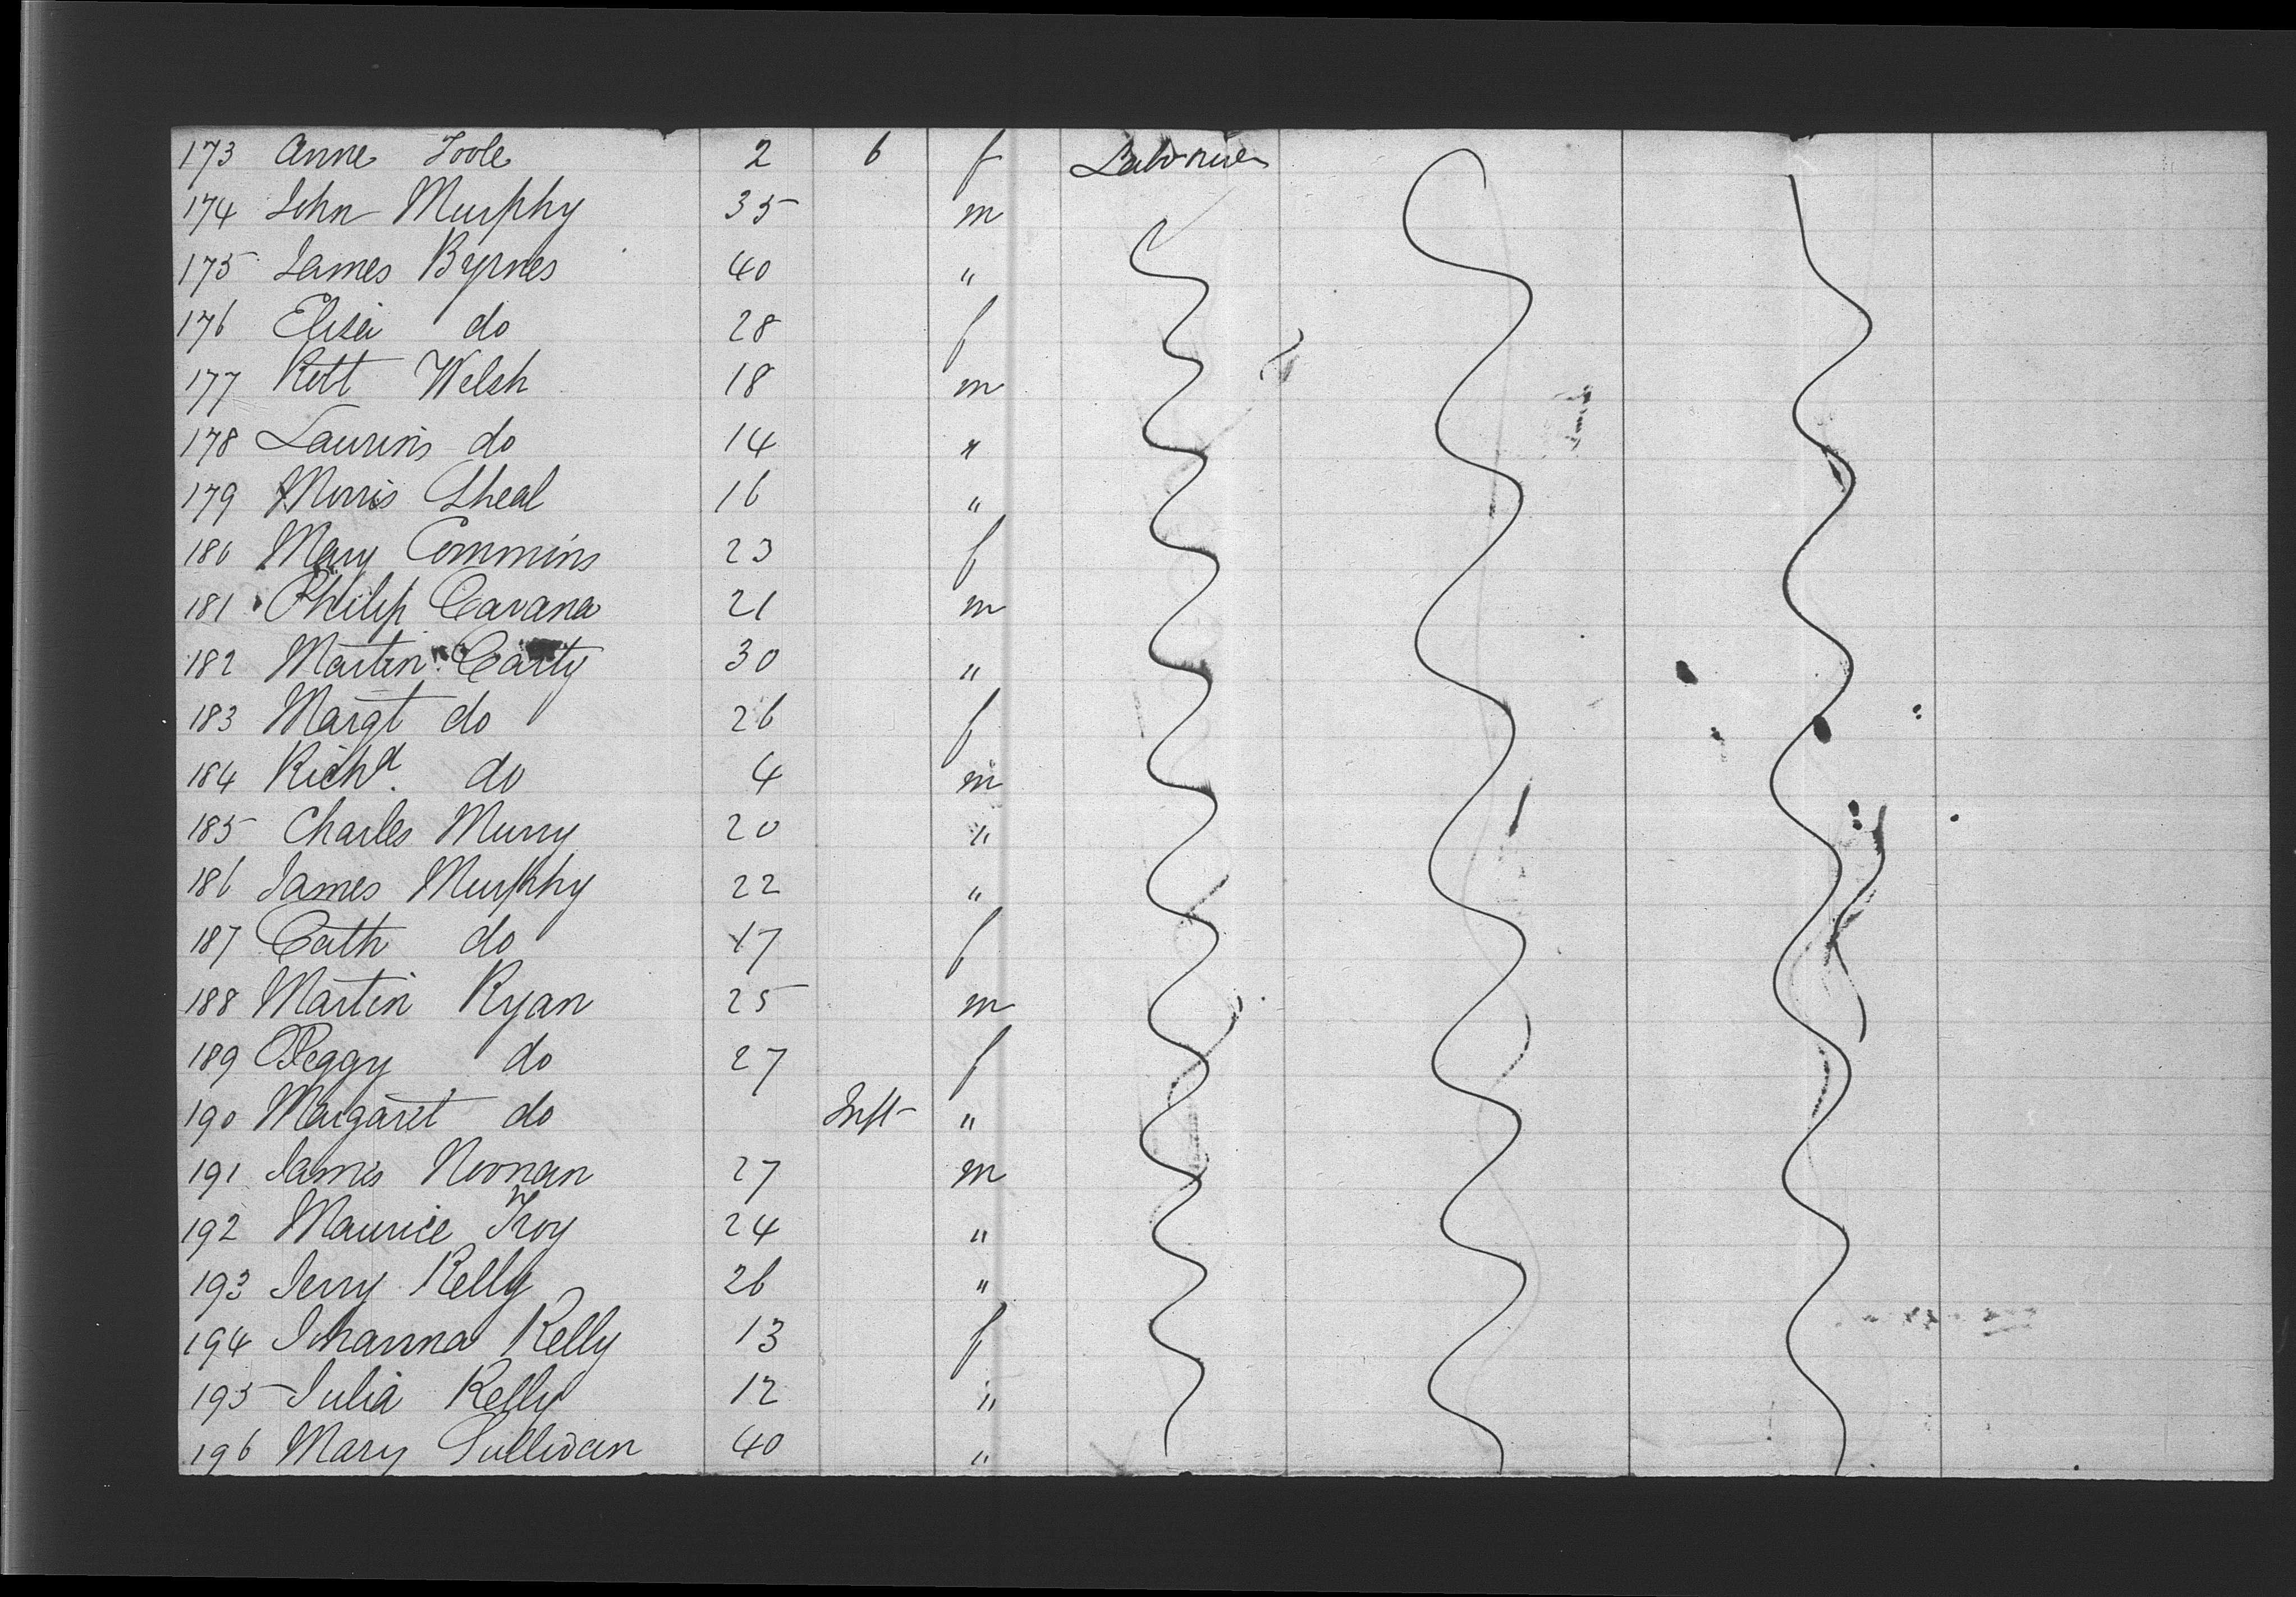 173 Anne Toole 2 6 f Labourer
174 John Murphy 35 m
175 James Byrnes 40 "
176 Eliza do 28 f
177 Patt Welsh 18 m
178 Laurins do 14 "
179 Morris Sheal 16 "
180 Mary Commins 23 f
181 Philip Cavana 21 m
182 Martin Carty 30 "
183 Margt do 26 f
184 Richd. do 4 m
185 Charles Murry 20 "
186 James Murphy 22 "
187 Cath do 17 f
188 Martin Ryan 25 m
189 Peggy do 27 f
190 Margaret do Inft "
191 James Noonan 27 m
192 Maurice Troy 24 "
193 Jerry Kelly 26 "
194 Johanna Kelly 13 f
195 Julia Kelly 12 "
196 Mary Sullivan 40 "